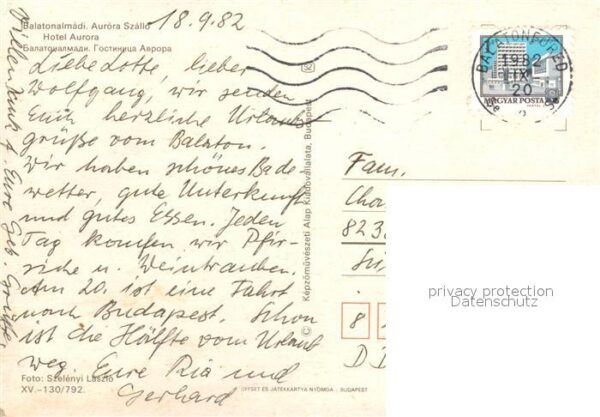 18.9.82
Balatonalmádi. Auróra Szálló
Hotel Aurora
Балатоналмади. Гостиница Аврора
Liebe Lotte, lieber
Wolfgang, wir senden
Euch herzliche Urlaubs-
grüße vom Balaton.
Wir haben schönes Bade
wetter, gute Unterkunft
und gutes Essen. Jeden
Tag kaufen wir Pfir-
siche u. Weintrauben.
Am 20. ist eine Fahrt
nach Budapest. Schon
ist die Hälfte vom Urlaub
weg. Eure Ria und
Gerhard
Vielen Dank f. Eure Geb. Grüße.
Foto: Szelényi László
XV.–130/792.
© Képzőművészeti Alap Kiadóvállalata, Budapest
OFFSET ÉS JÁTÉKKÁRTYA NYOMDA · BUDAPEST
BALATONFÜRED
1982
IX
20
MAGYAR POSTA
Fam.
823
8
D D
privacy protection
Datenschutz